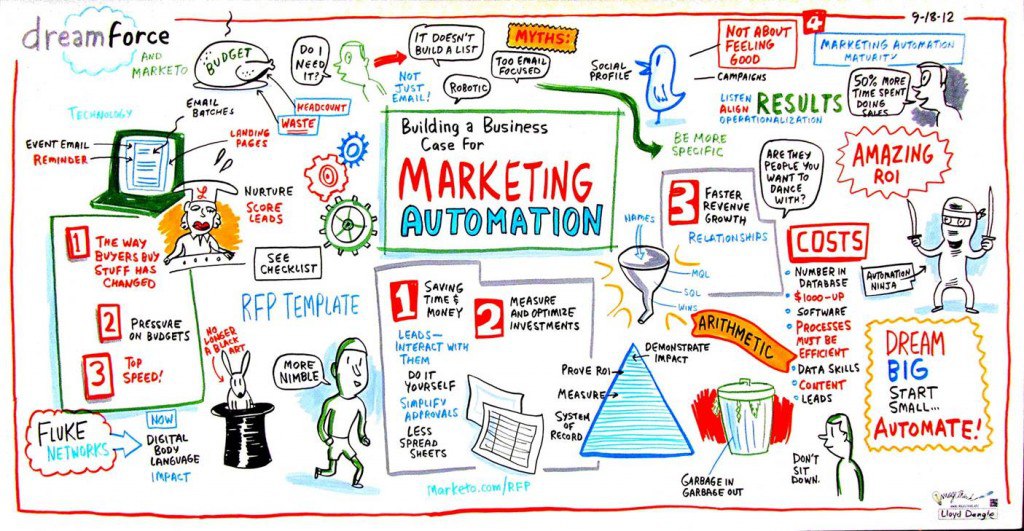 dreamforce
AND
MARKETO
BUDGET
HEADCOUNT
WASTE
DO I
NEED
IT?
IT DOESN'T
BUILD A LIST
NOT
JUST
EMAIL!
ROBOTIC
MYTHS:
TOO EMAIL
FOCUSED
SOCIAL
PROFILE
BE MORE
SPECIFIC
NOT ABOUT
FEELING
GOOD
CAMPAIGNS
LISTEN
ALIGN
OPERATIONALIZATION
RESULTS
4
9-18-12
MARKETING AUTOMATION
MATURITY
50% MORE
TIME SPENT
DOING
SALES
AMAZING
ROI
TECHNOLOGY
EMAIL
BATCHES
EVENT EMAIL
REMINDER
LANDING
PAGES
L
NURTURE
SCORE
LEADS
Building a Business
Case For
MARKETING
AUTOMATION
1
THE WAY
BUYERS BUY
STUFF HAS
CHANGED
2
PRESSURE
ON BUDGETS
3
TOP
SPEED!
SEE
CHECKLIST
RFP TEMPLATE
NO
LONGER
A BLACK
ART
MORE
NIMBLE
FLUKE
NETWORKS
NOW
DIGITAL
BODY
LANGUAGE
IMPACT
1
SAVING
TIME &
MONEY
LEADS—
INTERACT WITH
THEM
DO IT
YOURSELF
SIMPLIFY
APPROVALS
LESS
SPREAD
SHEETS
2
MEASURE
AND OPTIMIZE
INVESTMENTS
Marketo.com/RFP
3
FASTER
REVENUE
GROWTH
RELATIONSHIPS
ARE THEY
PEOPLE YOU
WANT TO
DANCE
WITH?
NAMES
MQL
SQL
WINS
ARITHMETIC
DEMONSTRATE
IMPACT
PROVE ROI
MEASURE
SYSTEM
OF
RECORD
GARBAGE IN
GARBAGE OUT
COSTS
• NUMBER IN
DATABASE
• $1000-UP
• SOFTWARE
• PROCESSES
MUST BE
EFFICIENT
• DATA SKILLS
• CONTENT
• LEADS
DON'T
SIT
DOWN.
AUTOMATION
NINJA
DREAM
BIG
START
SMALL...
AUTOMATE!
Lloyd Dangle